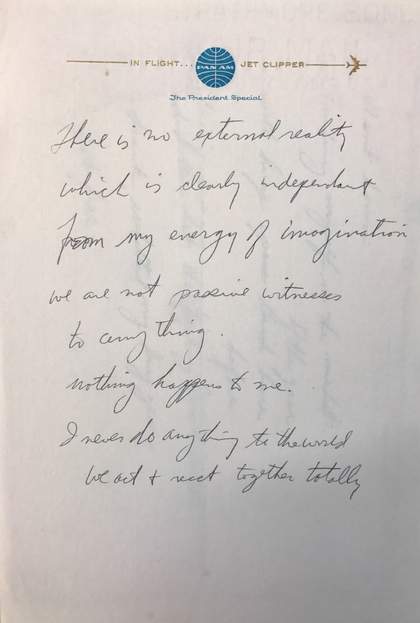 IN FLIGHT... PAN AM JET CLIPPER
The President Special
There is no external reality
which is clearly independant
from my energy of imagination
we are not passive witnesses
to any thing.
nothing happens to me.
I never do anything to the world
we act + react together totally